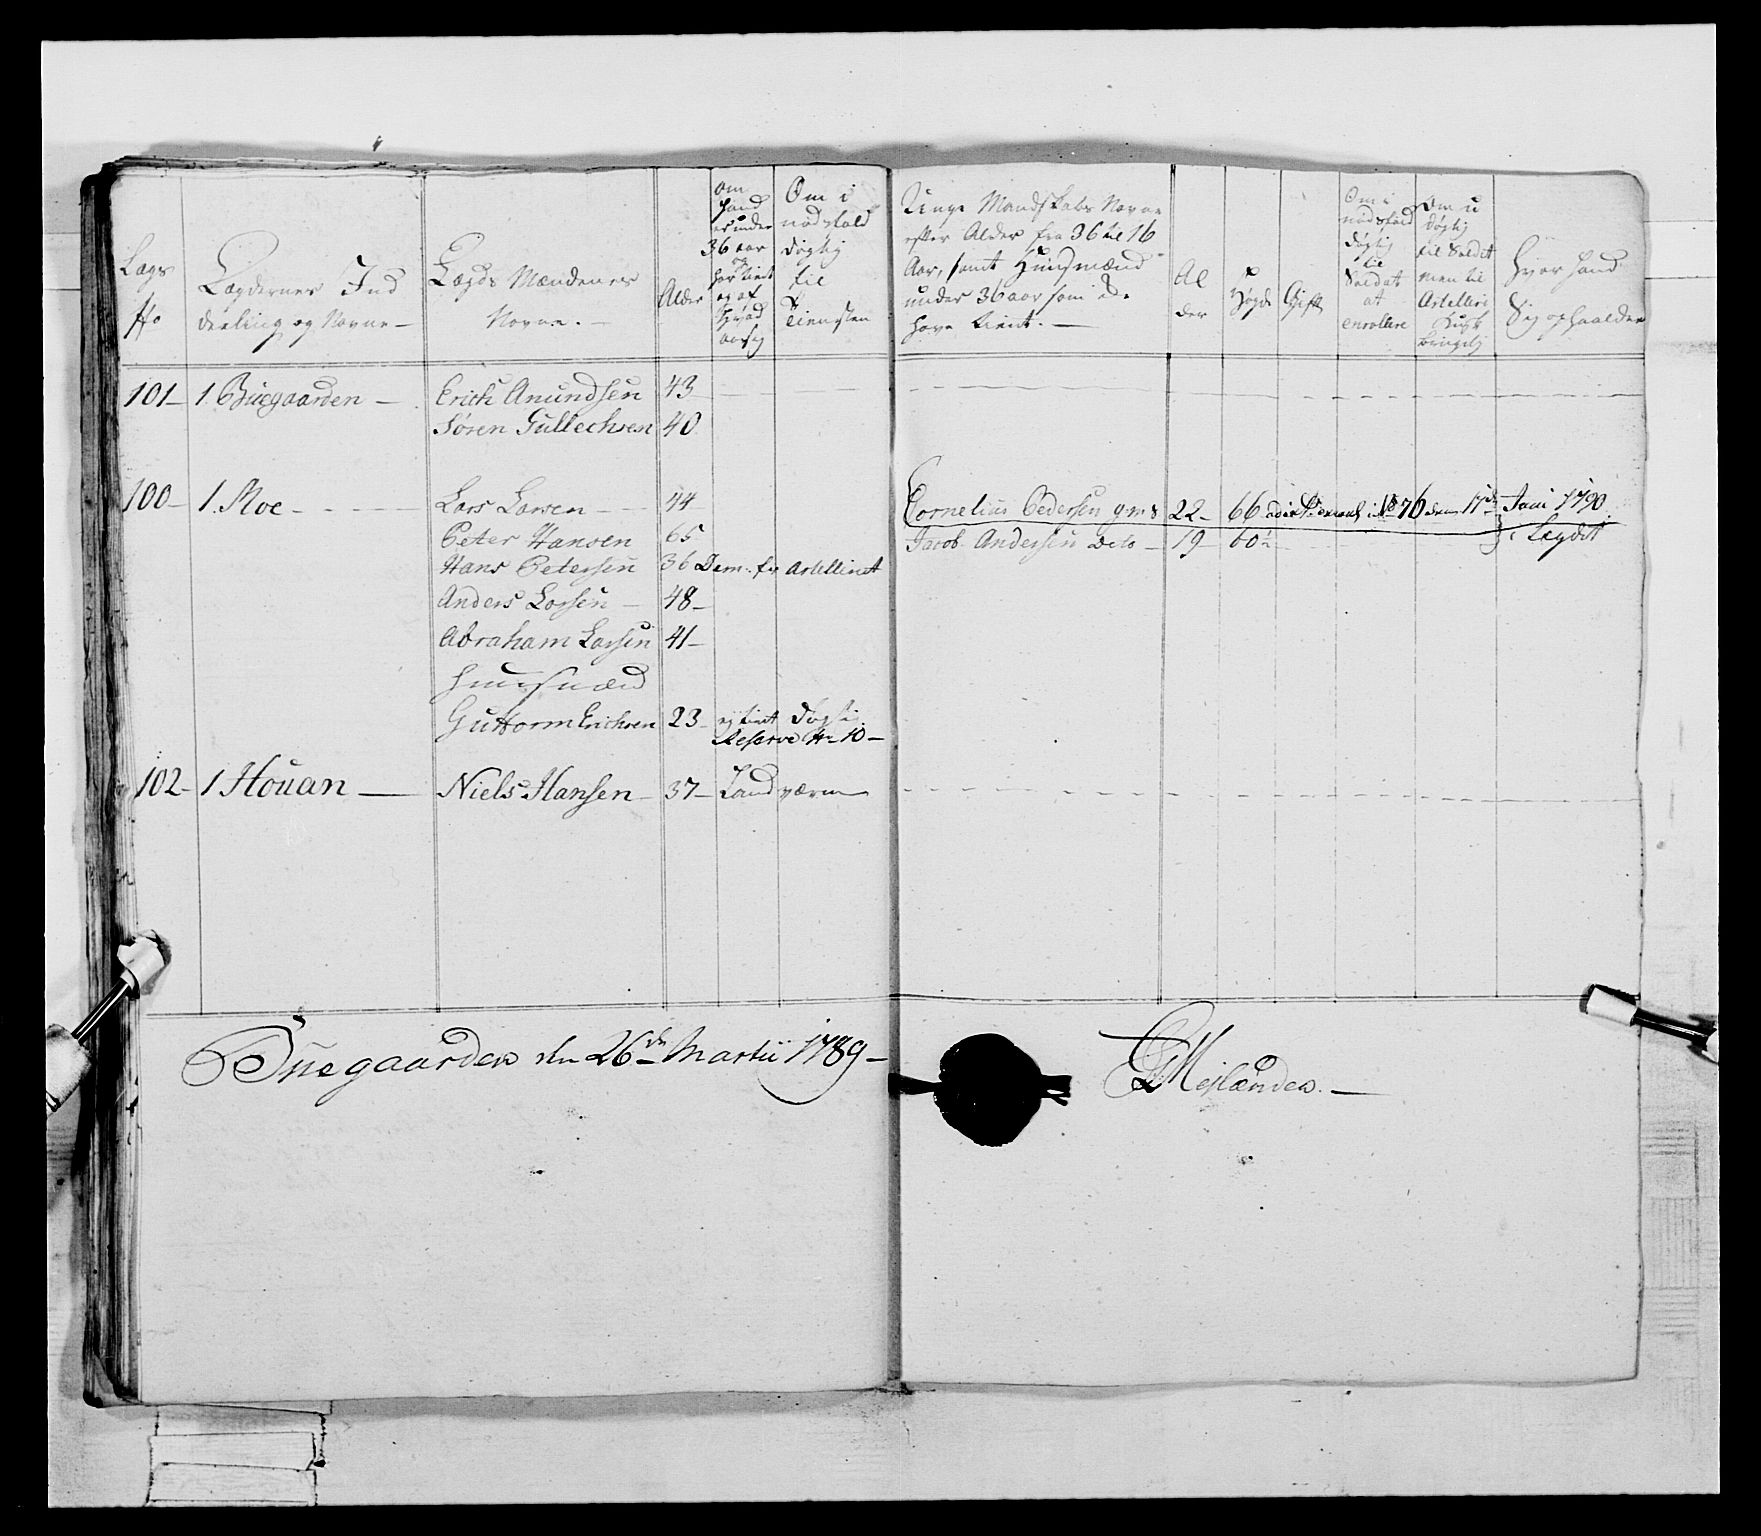 Lægs
No
Lægdernes Ind
deeling og Navne -
Lægds Mændenes
Navne. -
Alder
om
hand
er under
36 aar
og
har tient
Om i
nødsfald
døgtig
til
Tienesten
Unge Mandskabs Navne
efter Alder fra 36 til 16
Aar, samt Huusmænd
under 36 aar som ei
have tient. -
Al
der
Høyde
Gift
Om i
nødsfald
døgtig
til
Soldat
at
enrollere
Om u
døgtig
til Soldat
men til
Artelleri
Hvor hand
Sig ophaalder
101 - 1 Buegaarden - Erich Amundsen 43
Søren Gullechsen 40
100 - 1. Roe - - - - Lars Larsen - - 44 Cornelius Pedersen g.m.s 22 - 66 No 76 den 17de Juni 1790
Peter Hansen 65 Jacob Andersen Dito - 19 60½ i Legdet
Hans Petersen 36 Dem. fra Artelleriet
Anders Larsen - 48 -
Abraham Larsen 41 -
Huusmænd
Guttorm Erichsen 23 - ej tient døgti
Reserve No 10 -
102 - 1 Houan - Niels Hansen - 37 - Landværn
Buegaarden den 26de Martii 1789 -
Mejlænder. -